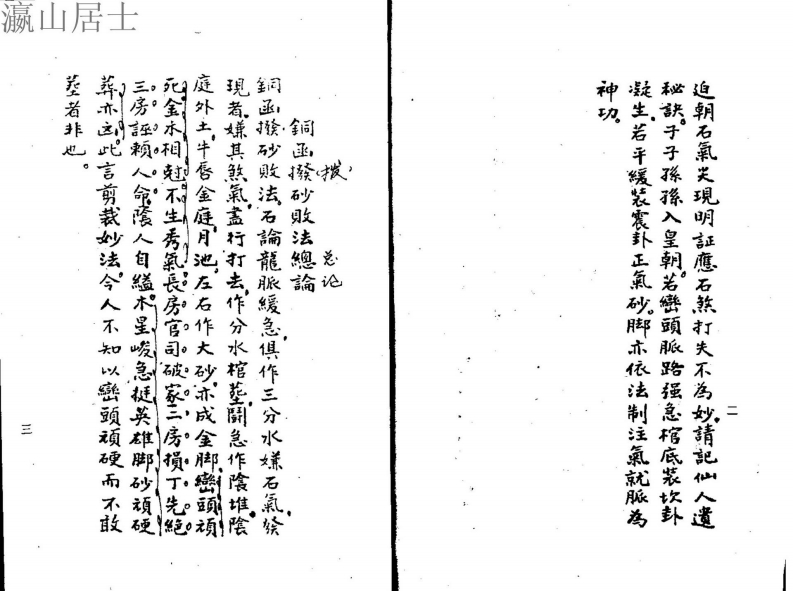 瀛山居士
迫朝石氣尖現明証應石煞打失不為妙。請記仙人遺
秘訣。子子孫孫入皇朝。若巒頭脈路强急棺底裝坎卦
凝生。若平緩裝震卦正氣砂。脚亦依法制注氣就脈為
神功。
二
銅函撥砂敗法總論
(撥)
总论
銅函撥砂敗法。石論龍脈緩急。俱作三分水嫌石氣發
現者。嫌其煞氣。盡行打去。作分水棺塟鬪急作陰堆陰
庭外土。牛唇金庭月池。左右作大砂。亦成金脚。巒頭頑
死金木相尅不生秀氣。長房官司破家。二房損丁先絕
三房誣賴人命。陰人自縊。木星峻急挺英雄脚砂頑硬
葬亦凶。此言剪裁妙法。今人不知以巒頭頑硬而不敢
塟者非也。
三